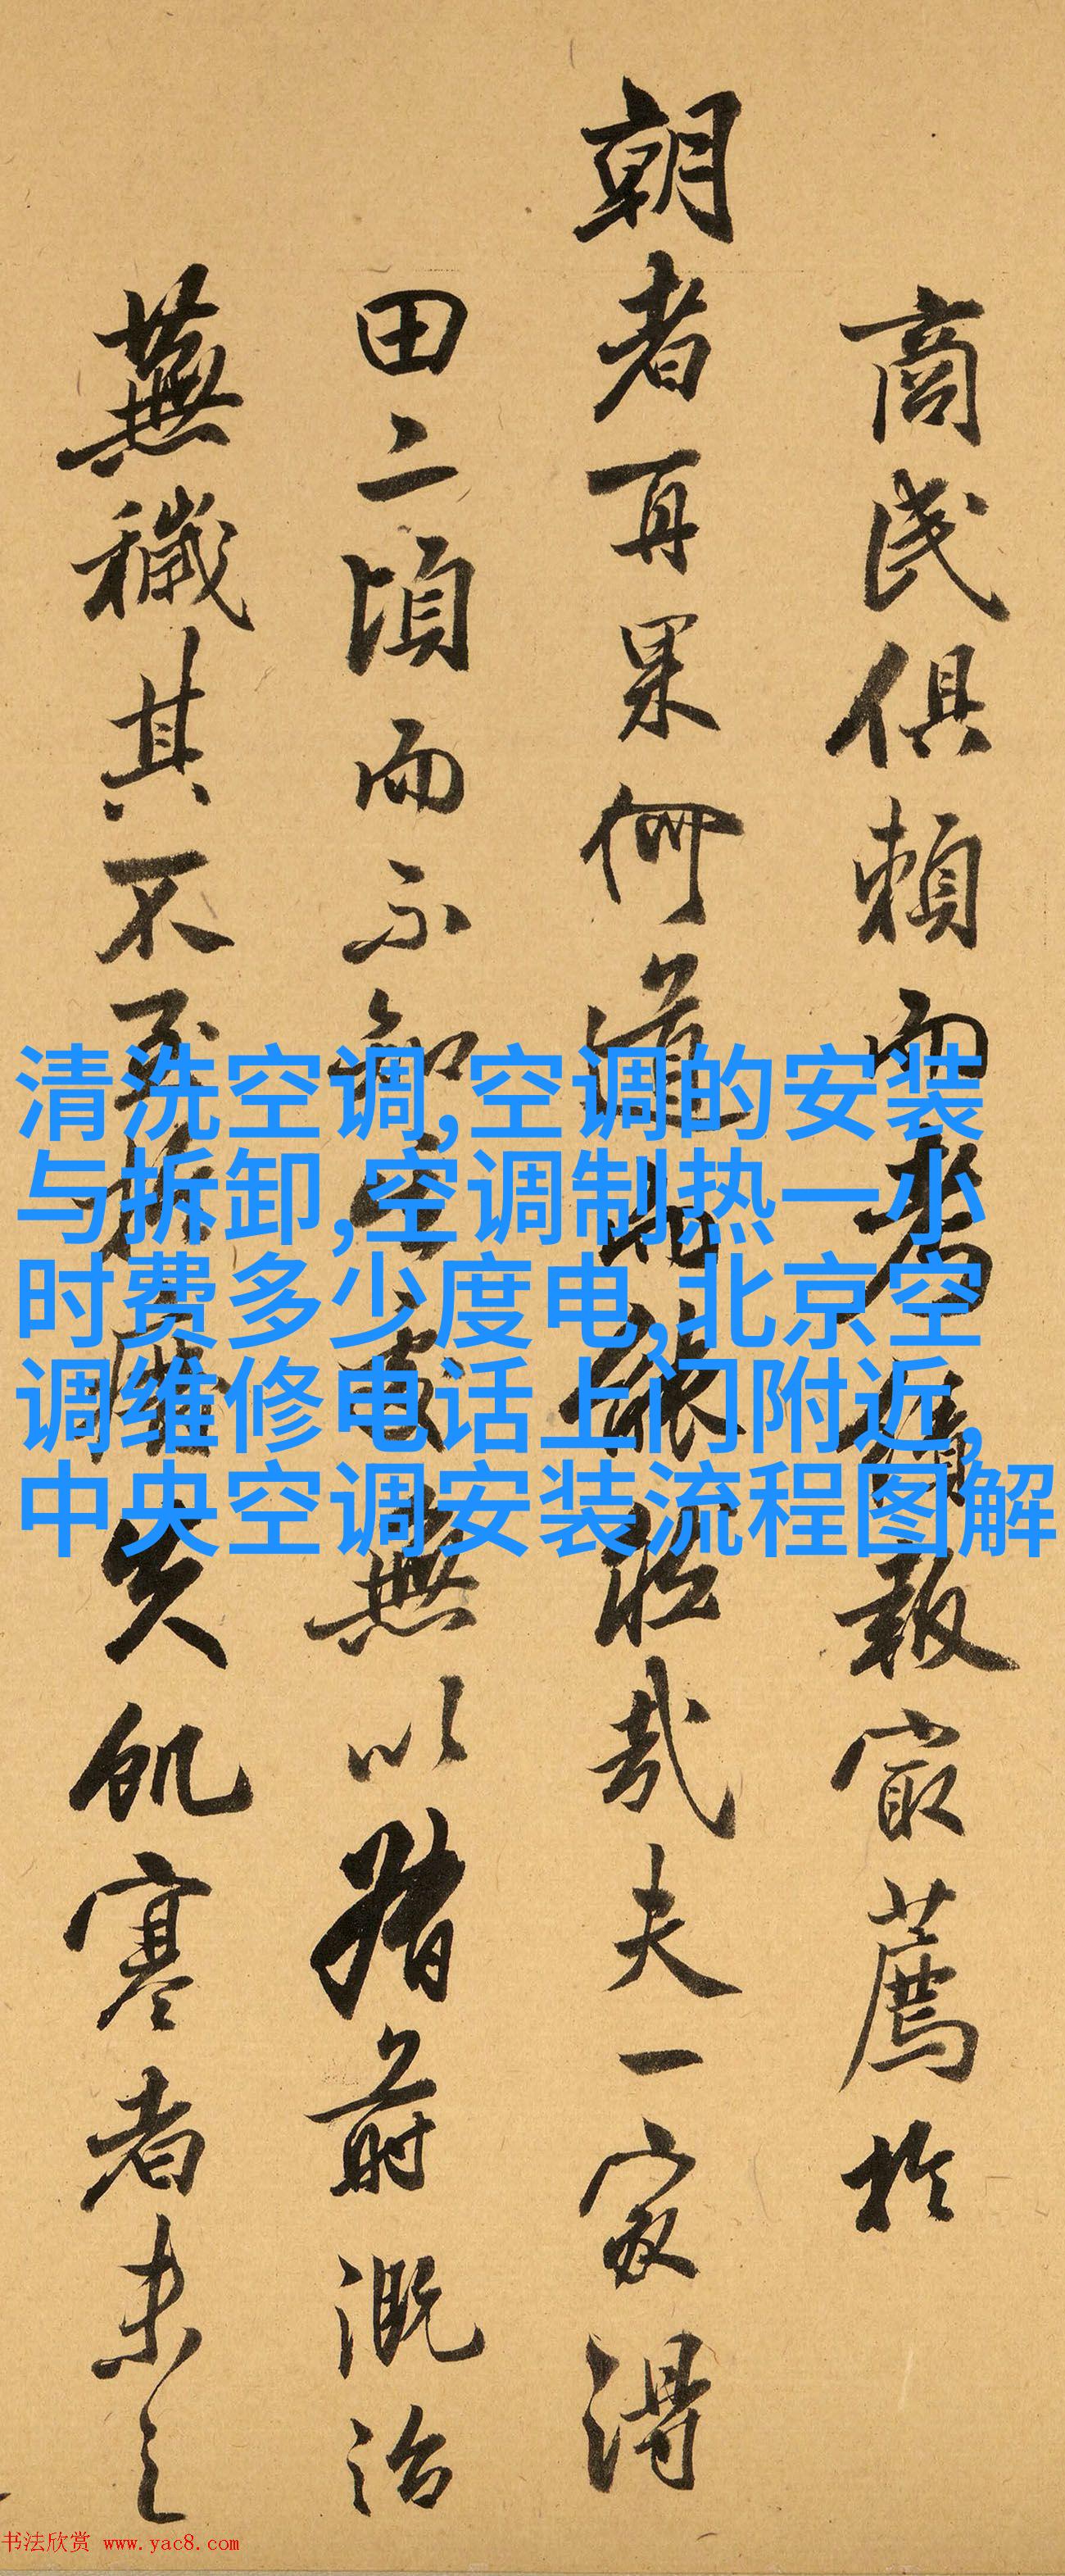 商民俱賴而考績報寂薦於
朝者再果何道此能致哉夫一家得
田二頃而不知無以猪前溉治
蕪穢其不至失飢寒者未之
清洗空调,空调的安装
与拆卸,空调制热一小
时费多少度电,北京空
调维修电话上门附近,
中央空调安装流程图解
书法欣赏 www.yac8.com